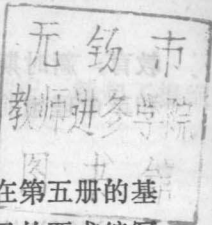 无锡市
教师进修学院
图书馆
在第五册的基